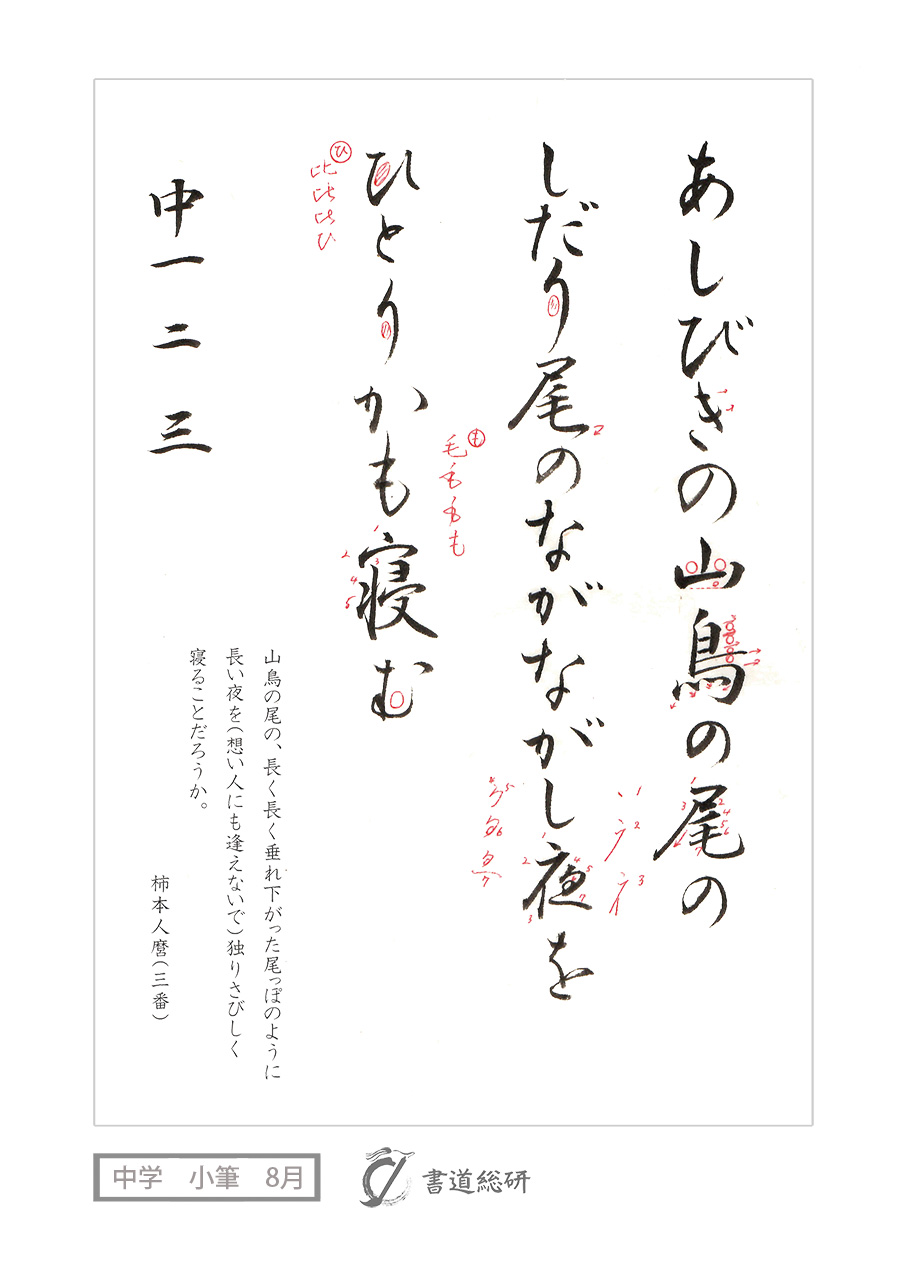 あしびきの山鳥の尾の
しだり尾のながながし夜を
ひとりかも寝む
中一 二 三
ひ
比
比
比
ひ
も
毛
毛
毛
も
山鳥の尾の、長く長く垂れ下がった尾っぽのように
長い夜を(想い人にも逢えないで)独りさびしく
寝ることだろうか。
柿本人麿(三番)
中学 小筆 8月
書道総研